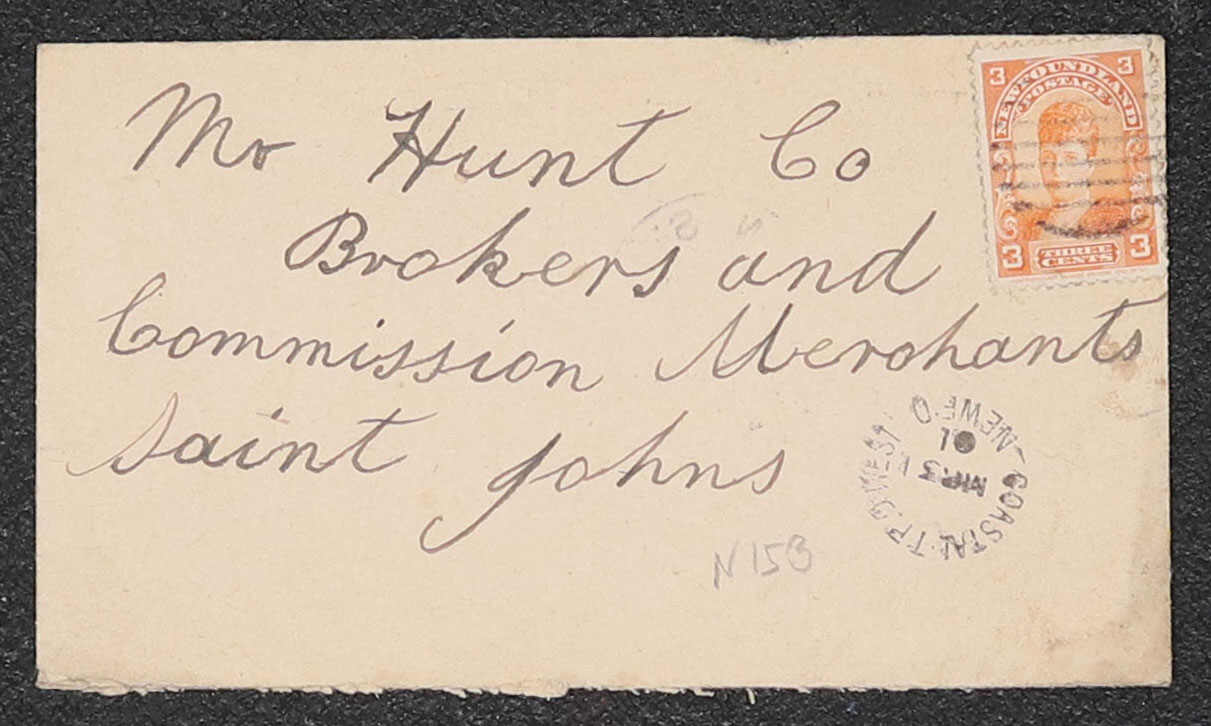 Mr Hunt Co
Brokers and
Commission Merchants
Saint Johns
3 3
NEWFOUNDLAND
POSTAGE
3 THREE CENTS 3
COASTAL T.P.O. WEST
NEWF.D
01
N15B